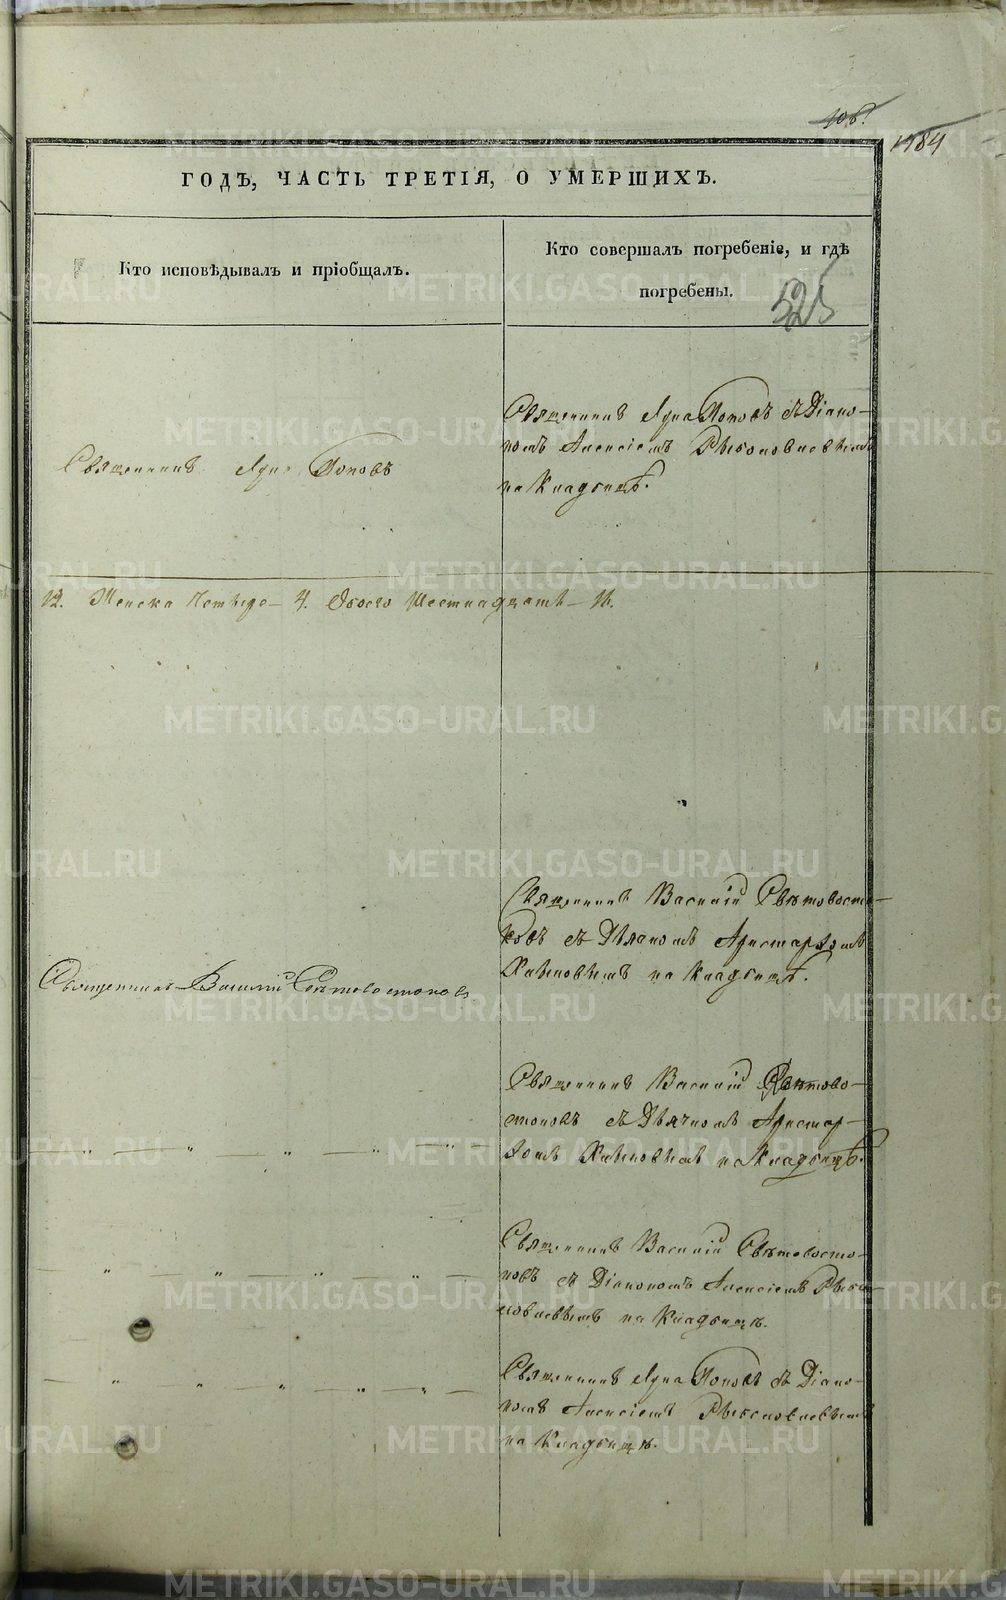 1084
ГОДЪ, ЧАСТЬ ТРЕТІЯ, О УМЕРШИХЪ.
Кто исповѣдывалъ и пріобщалъ.
Кто совершалъ погребеніе, и гдѣ
погребены.
525
Священникъ Поповъ
Священникъ Попов съ Діако-
номъ Алексіемъ
на кладбищѣ.
12. Женска Четыре – 4. Обоего Шестнадцать – 16.
Священникъ Василій Свѣтовостоковъ
Священникъ Василій Свѣтовосто-
ковъ съ Дьякомъ Аристархомъ
Хлыновымъ на кладбищѣ.
Священникъ Василій Свѣтово-
стоковъ съ Дьячкомъ Аристар-
хомъ Хлыновымъ на кладбищѣ.
Священникъ Василій Свѣтовосто-
ковъ съ Діакономъ Алексіемъ
на кладбищѣ.
Священникъ Попов съ Діако-
номъ Алексіемъ
на кладбищѣ.
METRIKI.GASO-URAL.RU